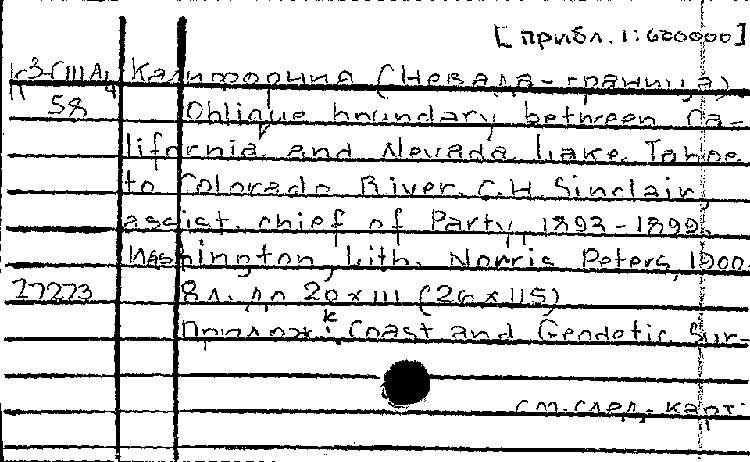 [прибл. 1:600000]
К 3-США Калифорния (Невада-граница).
58 Oblique boundary between Ca-
lifornia and Nevada Lake Tahoe
to Colorado River. C.H. Sinclair,
assist. chief of Party, 1893-1899.
Washington, Lith. Norris Peters, 1900.
27273 8 л. до 20x111 (26x115)
Прилож. к Coast and Geodetic Sur-
см. след. карт.